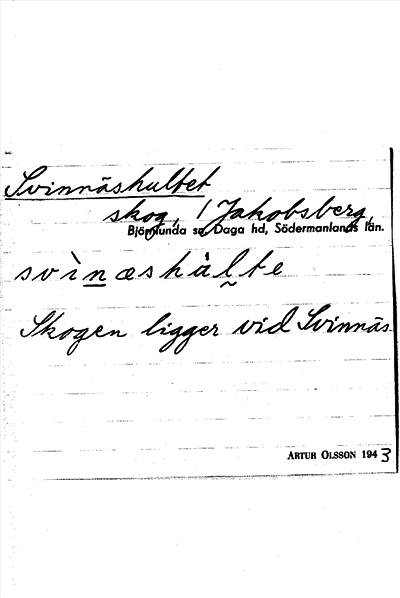 Svinnäshultet
skog, / Jakobsberg,
Björnlunda sn, Daga hd, Södermanlands län.
svìnæshàl̰te
Skogen ligger vid Svinnäs
ARTUR OLSSON 1943